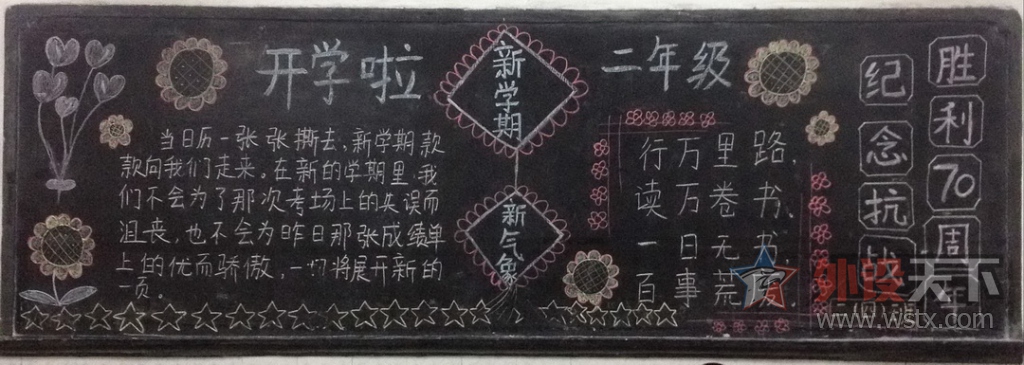 开学啦
当日历一张张撕去，新学期款
款向我们走来。在新的学期里，我
们不会为了那次考场上的失误而
沮丧，也不会为昨日那张成绩单
上的优而骄傲，一切将展开新的
一页。
新学期
新气象
二年级
行万里路、
读万卷书、
一日无书、
百事荒
纪念抗战
胜利70周年
外设天下
www.wstx.com